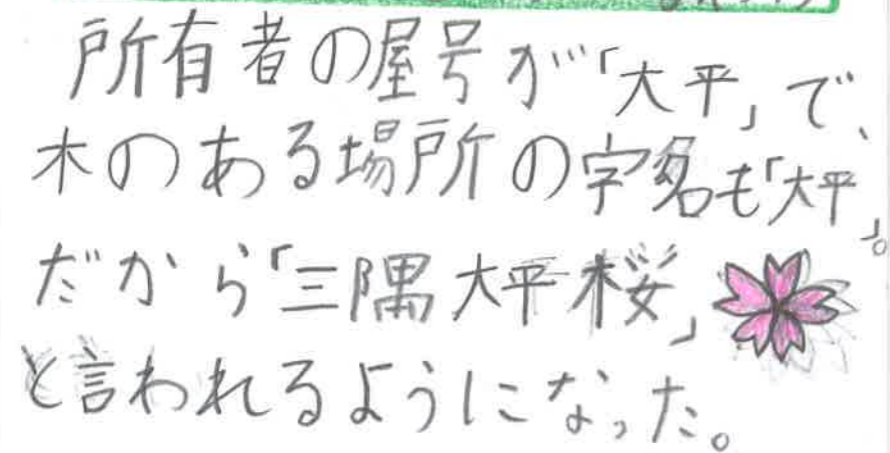 所有者の屋号が「大平」で、
木のある場所の字名も「大平」。
だから「三隅大平桜」
と言われるようになった。